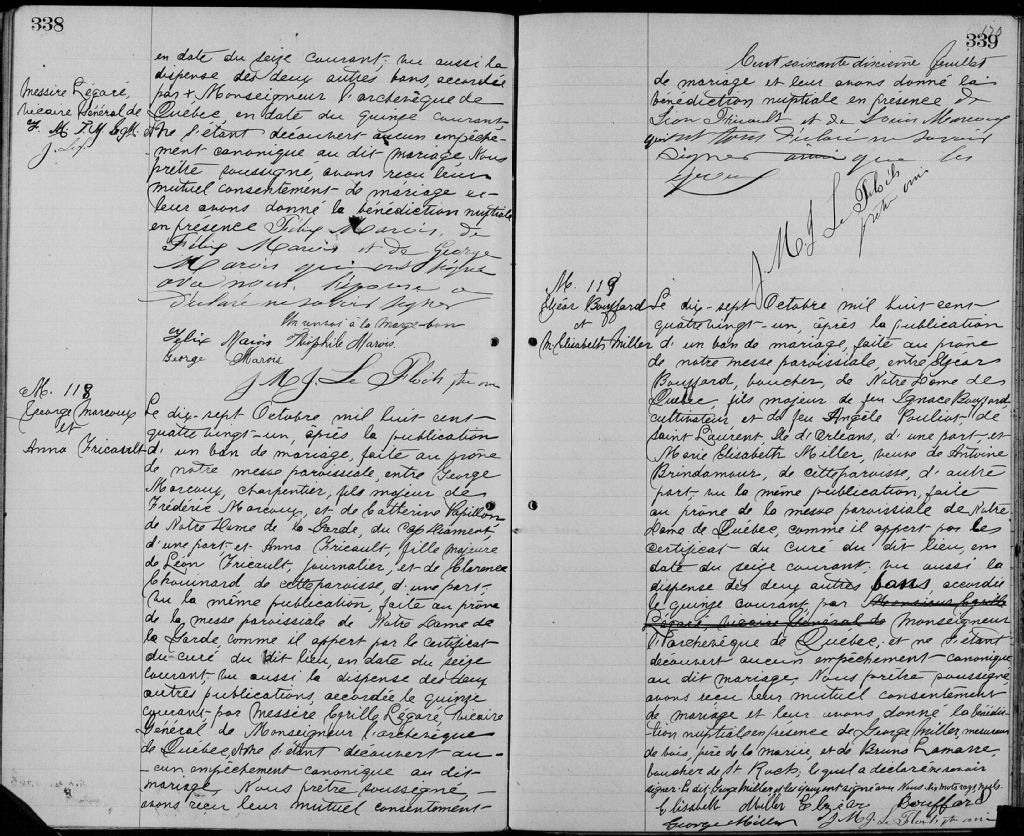 338
en date du seize courant, vu aussi la
dispense des deux autres bans, accordée
par + Monseigneur l'archevêque de
Québec, en date du quinze courant,
ne s'étant découvert aucun empêche-
ment canonique au dit mariage Nous
prêtre soussigné, avons reçu leur
mutuel consentement de mariage et
leur avons donné la bénédiction nuptiale
en présence Félix Marois, de
Félix Marois et de George
Marois qui ont signé
avec nous. l'épouse a
déclaré ne savoir signer
Un renvoi à la marge bon
Felix Marois Théophile Marois.
George Marois
J M J Le Flôch, ptre
Messire Légaré,
Vicaire Général de
M. 118
George Marcoux
et
Anna Fricault
Le dix-sept Octobre mil huit cent
quatre vingt-un, après la publication
d'un ban de mariage, faite au prône
de notre messe paroissiale, entre George
Marcoux, charpentier, fils majeur de
Frédéric Marcoux, et de Catherine Papillon
de Notre Dame de la Garde, du Cap Diamant,
d'une part et Anna Fricault, fille majeure
de Léon Fricault, journalier, et de Clarence
Chouinard de cette paroisse, d'une part,
Vu la même publication, faite au prône
de la messe paroissiale de Notre Dame de
la Garde, comme il appert par le certificat
du curé du dit lieu, en date du seize
courant, Vu aussi la dispense des deux
autres publications, accordée le quinze
courant par Messire Cyrille Légaré, Vicaire
Général de Monseigneur l'archevêque
de Québec, et ne s'étant découvert au-
-cun empêchement canonique au dit
mariage, Nous prêtre soussigné,
avons reçu leur mutuel consentement
170
339
Cent soixante dixième feuillet
de mariage et leur avons donné la
bénédiction nuptiale en présence de
Léon Fricault et de Louis Marcoux
qui ont tous déclaré ne savoir
signer ainsi que les
époux
J M J Le Flôch
ptre
M. 119
Elzéar Bouffard
et
M. Elisabeth Miller
Le dix-sept Octobre mil huit cent
quatre vingt-un, après la publication
d'un ban de mariage, faite au prône
de notre messe paroissiale, entre Elzéar
Bouffard, boucher, de Notre Dame de
Québec, fils majeur de feu Ignace Bouffard,
cultivateur et de feu Angèle Pouliot, de
Saint Laurent, Ile d'Orléans, d'une part et
Marie Elisabeth Miller, veuve de Antoine
Brindamour, de cette paroisse, d'autre
part, vu la même publication, faite
au prône de la messe paroissiale de Notre
Dame de Québec, comme il appert par les
certificat du curé du dit lieu, en
date du seize courant, vu aussi la
dispense des deux autres bans, accordée
le quinze courant par Monsieur Cyrille
Légaré, Vicaire Général de Monseigneur
l'archevêque de Québec, et ne s'étant
découvert aucun empêchement canonique
au dit mariage, Nous prêtre soussigné,
avons reçu leur mutuel consentement
de mariage et leur avons donné la bénédic-
-tion nuptiale en présence de George Miller, mesureur
de bois, père de la mariée, et de Bruno Lamarre
boucher de St Roch, lequel a déclaré ne savoir
signer. Le dit George Miller et les époux ont signé avec Nous. Dix mots rayés nuls.
Elisabeth Miller Elzéar Bouffard
George Miller J. M. J. Le Flôch, ptre